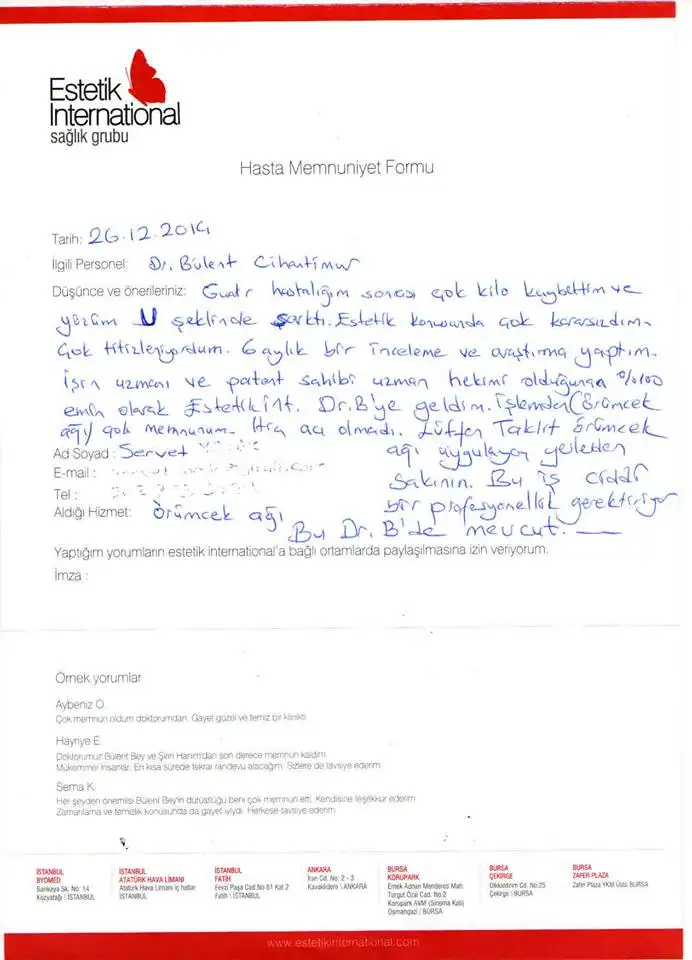 Estetik
International
sağlık grubu
Hasta Memnuniyet Formu
Tarih: 26.12.2014
İlgili Personel: Dr. Bülent Cihantimur
Düşünce ve önerileriniz: Guatr hastalığım sonası çok kilo kaybettim ve
yüzüm U şeklinde sarktı. Estetik konusunda çok kararsızdım.
Çok titizleniyordum. 6 aylık bir inceleme ve araştırma yaptım.
İşin uzmanı ve patent sahibi uzman hekimi olduğuna %100
emin olarak Estetikint. Dr.B'ye geldim. İşlemden (örümcek
ağı) çok memnunum. Hiç acı olmadı. Lütfen Taklit örümcek
Ad Soyad : Servet
ağı uygulayan yerlerden
E-mail :
sakının. Bu iş ciddi
Tel :
bir profesyonellik gerektiriyor
Aldığı Hizmet: Örümcek ağı
Bu Dr. B'de mevcut.
Yaptığım yorumların estetik international'a bağlı ortamlarda paylaşılmasına izin veriyorum.
İmza :
Örnek yorumlar
Aybeniz O.
Çok memnun oldum doktorumdan. Gayet güzel ve temiz bir klinikti.
Hayriye E.
Doktorumuz Bülent Bey ve Şirin Hanım'dan son derece memnun kaldım.
Mükemmel insanlar. En kısa sürede tekrar randevu alacağım. Sizlere de tavsiye ederim.
Sema K.
Her şeyden önemlisi Bülent Bey'in dürüstlüğü beni çok memnun etti. Kendisine teşekkür ederim.
Zamanlama ve temizlik konusunda da gayet iyiydi. Herkese tavsiye ederim.
İSTANBUL
BYOMED
Sarıkaya Sk. No: 14
Kozyatağı \ İSTANBUL
İSTANBUL
ATATÜRK HAVA LİMANI
Atatürk Hava Limanı iç hatlar
İSTANBUL
İSTANBUL
FATİH
Fevzi Paşa Cad.No 61 Kat 2
Fatih \ İSTANBUL
ANKARA
İran Cd. No: 2 - 3
Kavaklıdere \ ANKARA
BURSA
KORUPARK
Emek Adnan Menderes Mah.
Turgut Özal Cad. No:2
Korupark AVM (Sinema Katı)
Osmangazi / BURSA
BURSA
ÇEKİRGE
Dikkaldırım Cd. No:25
Çekirge \ BURSA
BURSA
ZAFER PLAZA
Zafer Plaza YKM Üstü BURSA
www.estetikinternational.com